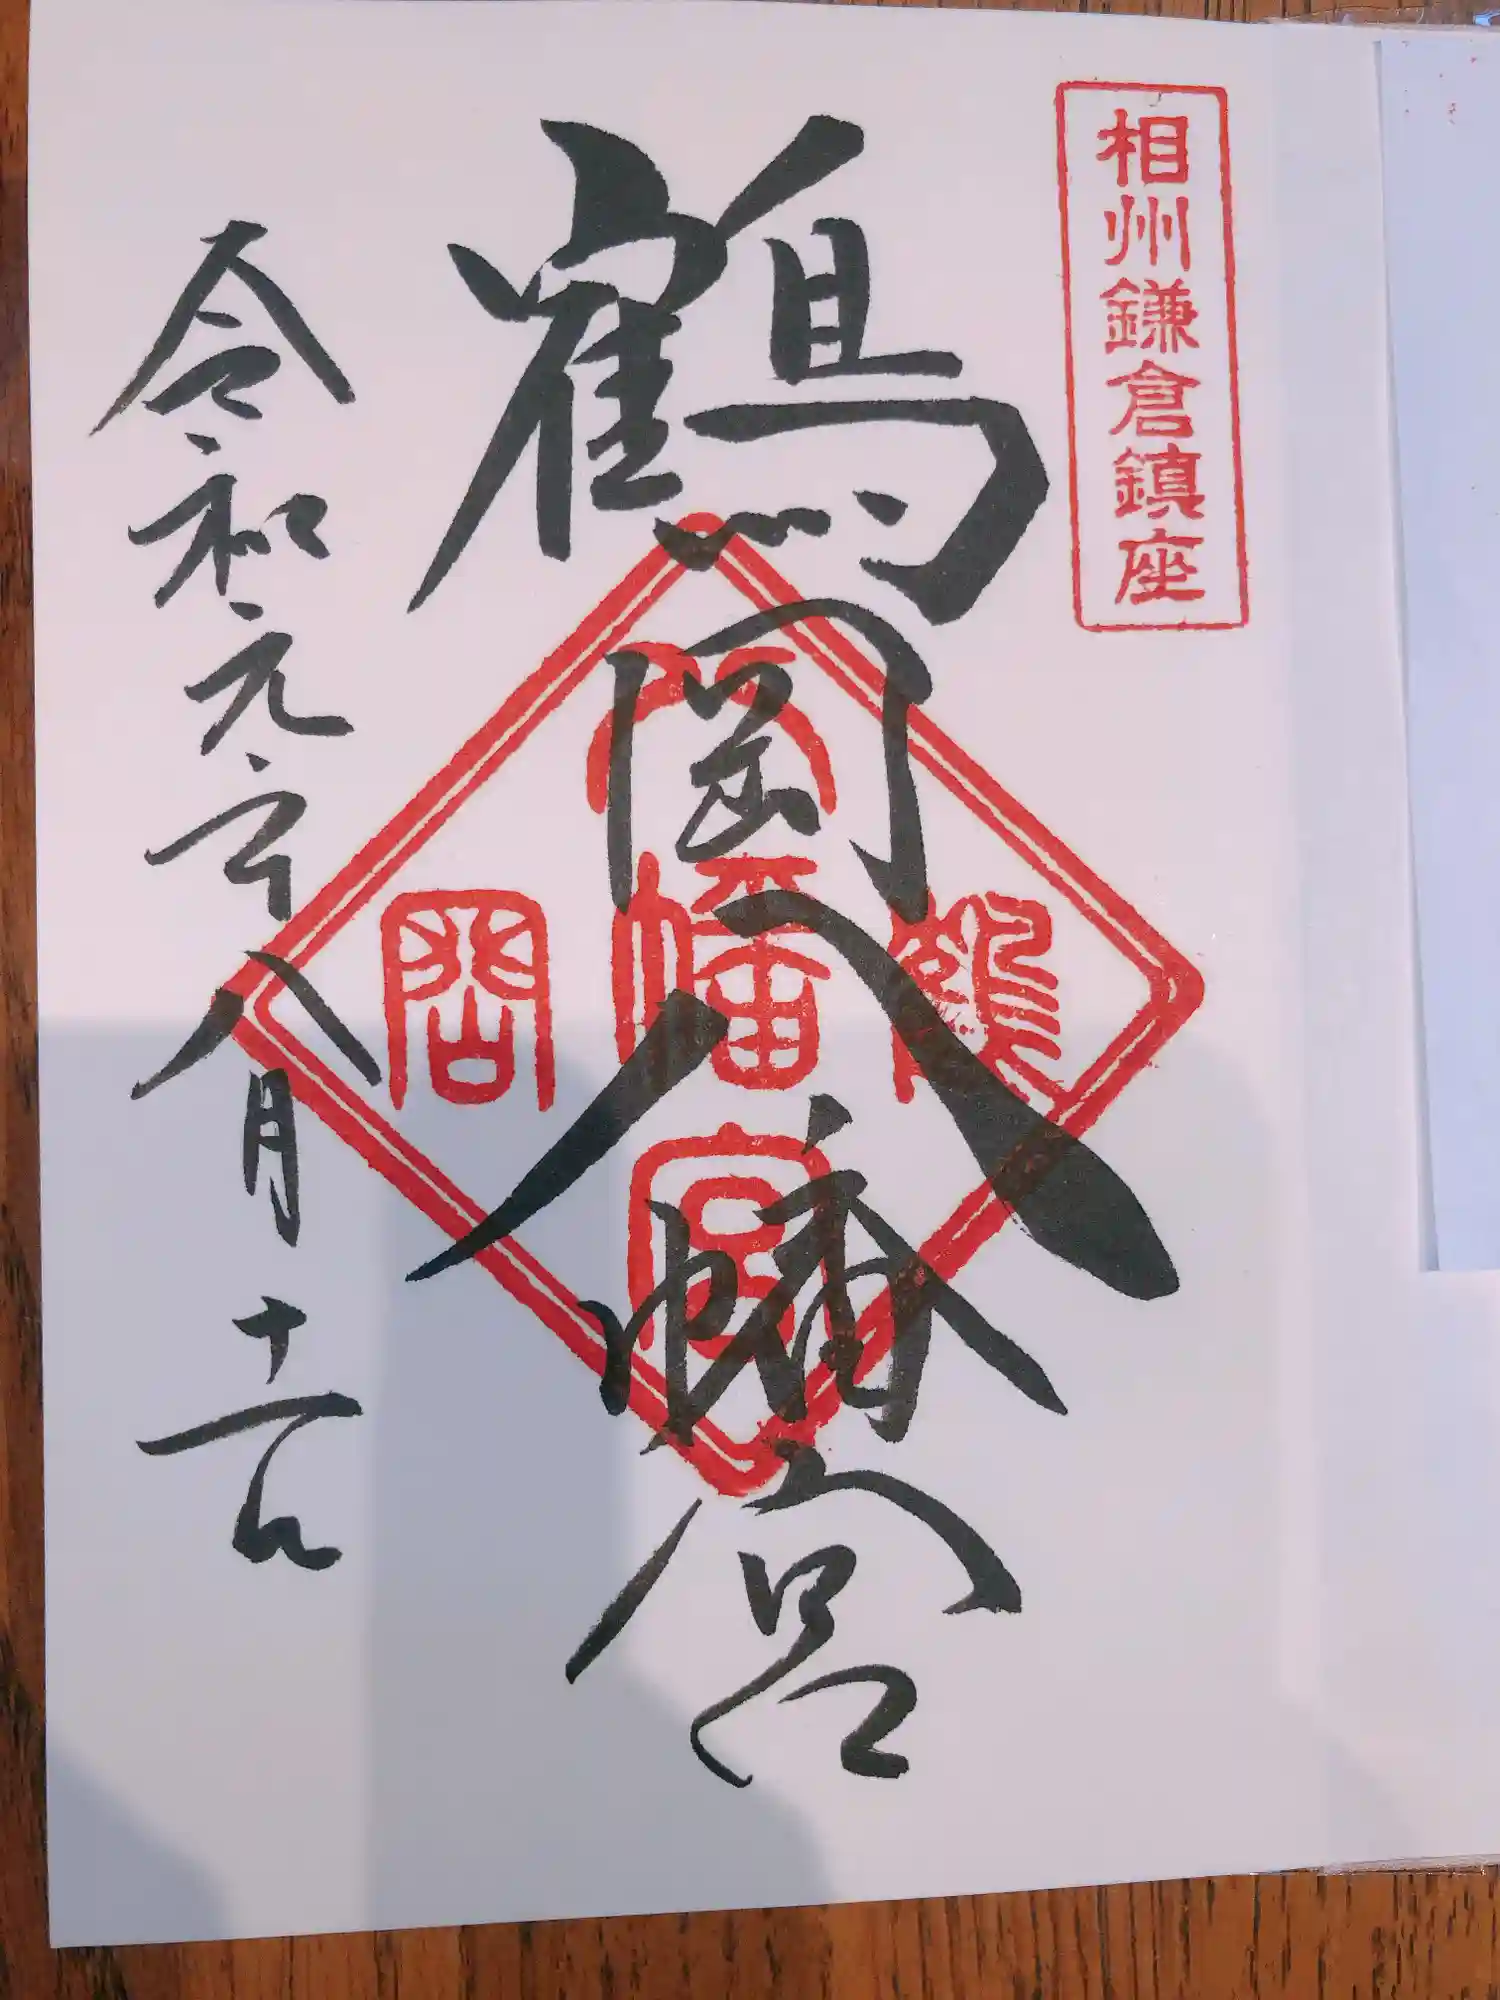 相州鎌倉鎮座
鶴岡八幡宮
鶴
岡
八幡宮
令和元年八月十一日